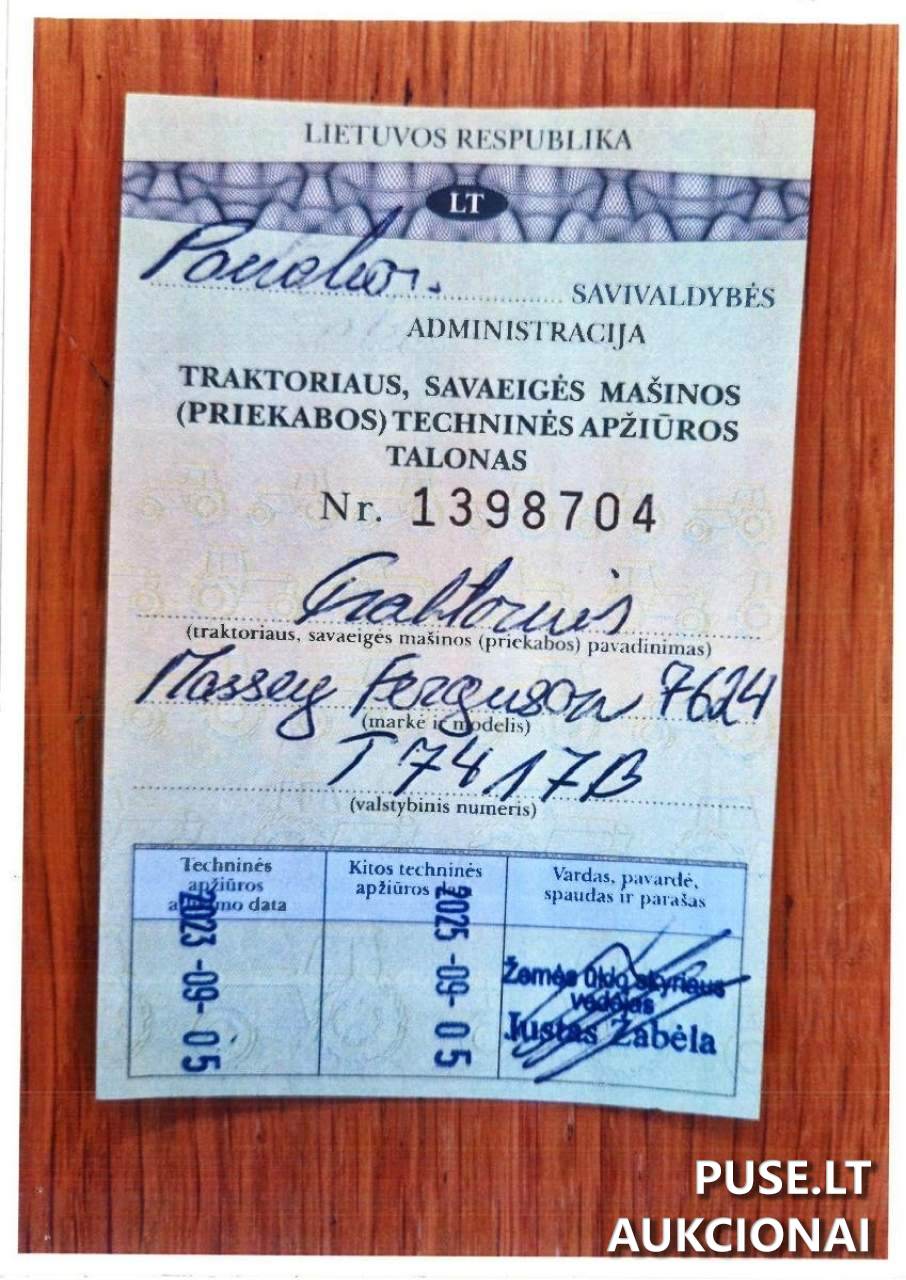 LIETUVOS RESPUBLIKA
LT
SAVIVALDYBĖS
ADMINISTRACIJA
TRAKTORIAUS, SAVAEIGĖS MAŠINOS
(PRIEKABOS) TECHNINĖS APŽIŪROS
TALONAS
Nr. 1398704
Traktorius
(traktoriaus, savaeigės mašinos (priekabos) pavadinimas)
Massey Ferguson 7624
(markė ir modelis)
T 7417B
(valstybinis numeris)
Techninės
apžiūros
data
2023-09-05
Kitos techninės
apžiūros
2025-09-05
Vardas, pavardė,
spaudas ir parašas
Žemės ūkio skyriaus
vedėjas
Justas Žabėla
PUSE.LT
AUKCIONAI